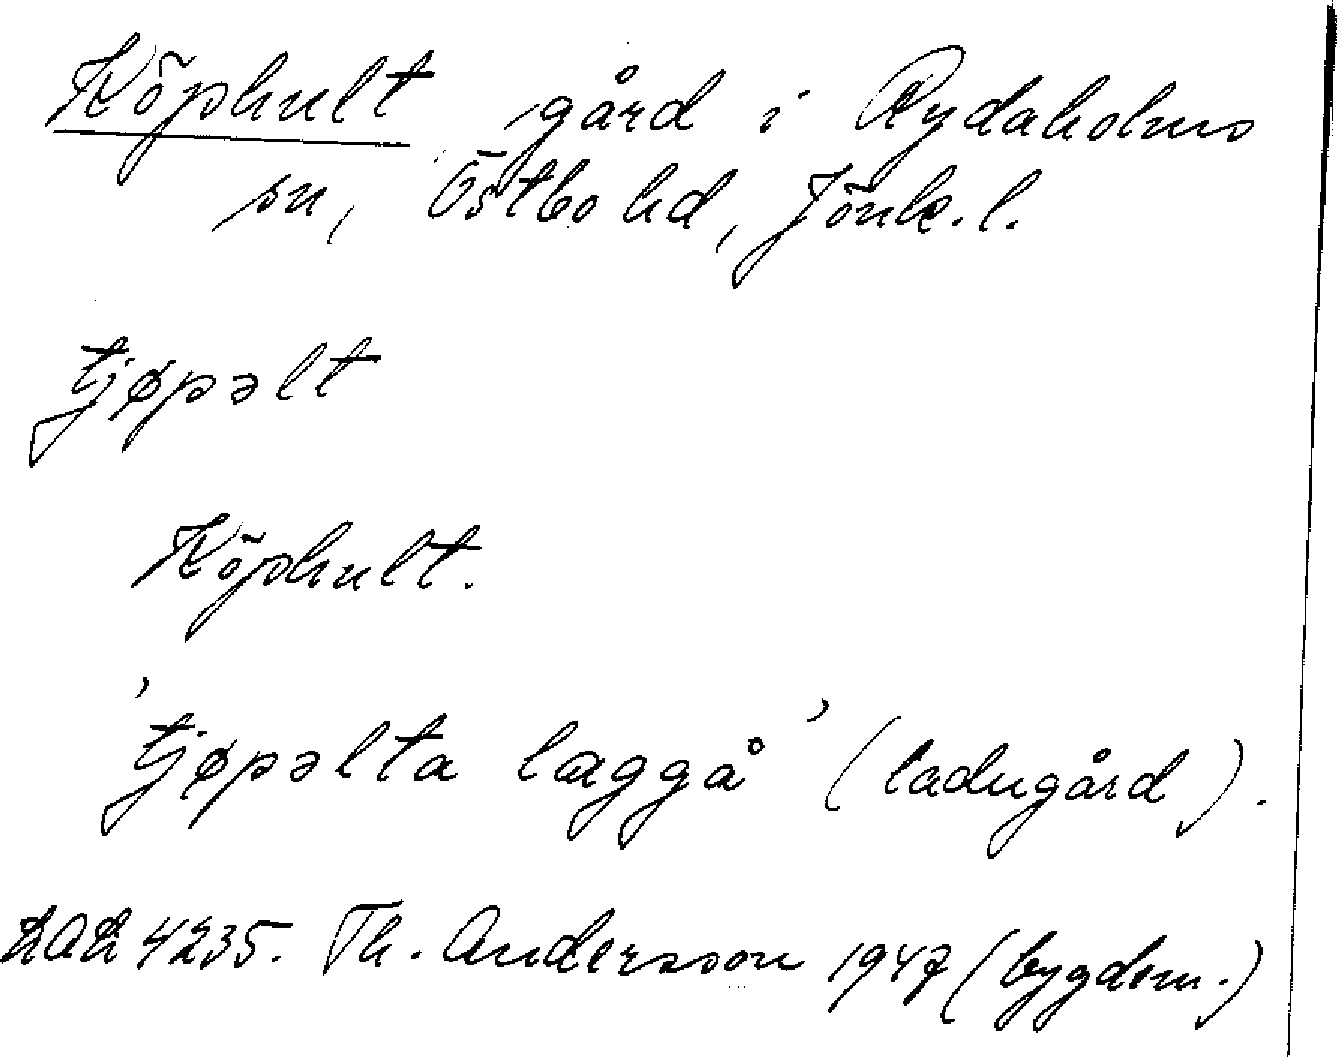 Köphult gård i Rydaholms
sn, Östbo hd, Jönk. l.
tjøpəlt
Köphult.
'tjøpəlta laggå' (ladugård).
LAL 4235. Th. Andersson 1947 (bygdem.)